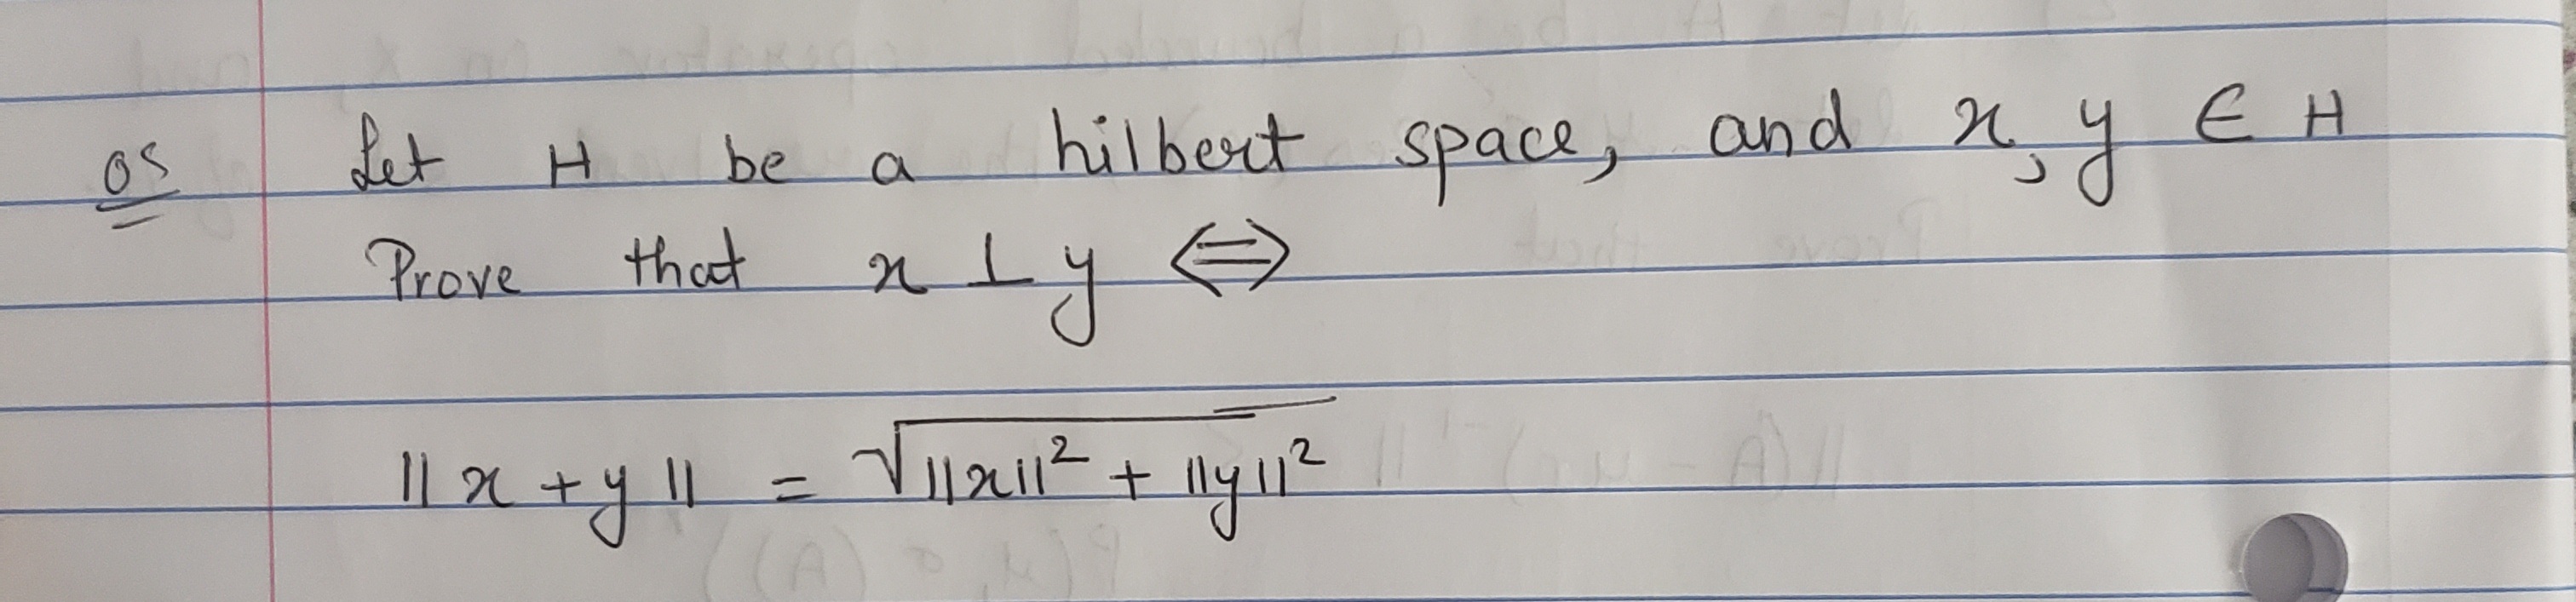 Q5 Let H be a hilbert space, and x, y ∈ H
Prove that x ⊥ y ⇔
||x + y|| = √||x||² + ||y||²